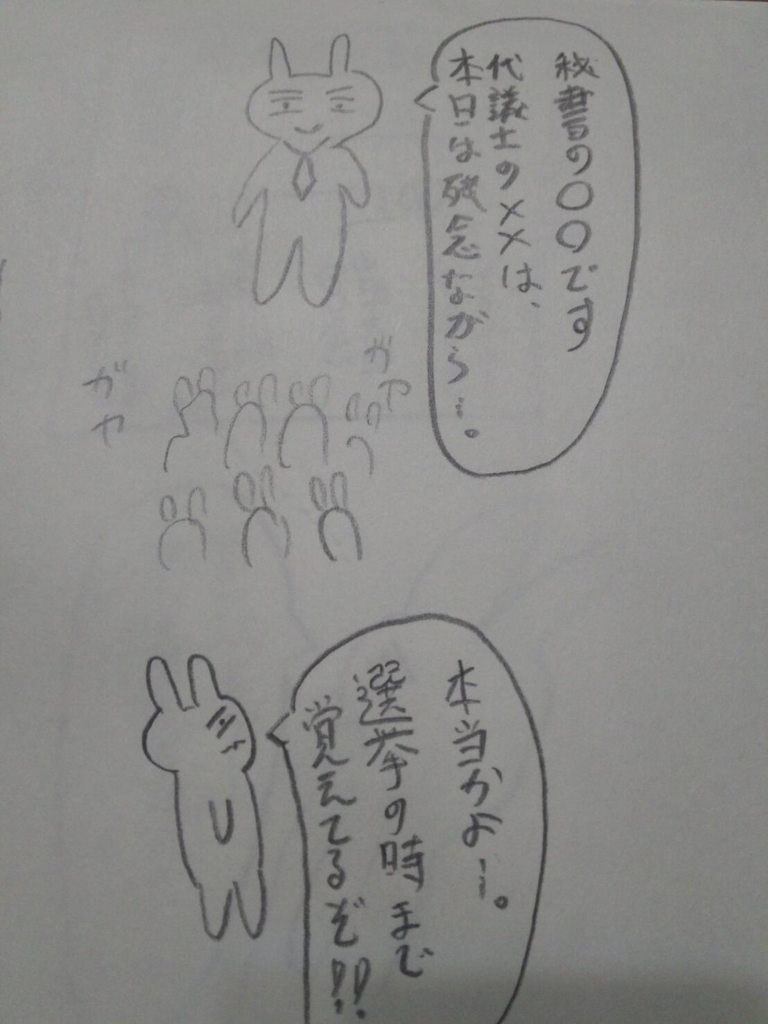 秘書の〇〇です
代議士の××は、
本日は残念ながら…。
ガヤ
ガヤ
本当かよ…。
選挙の時まで
覚えてるぞ!!